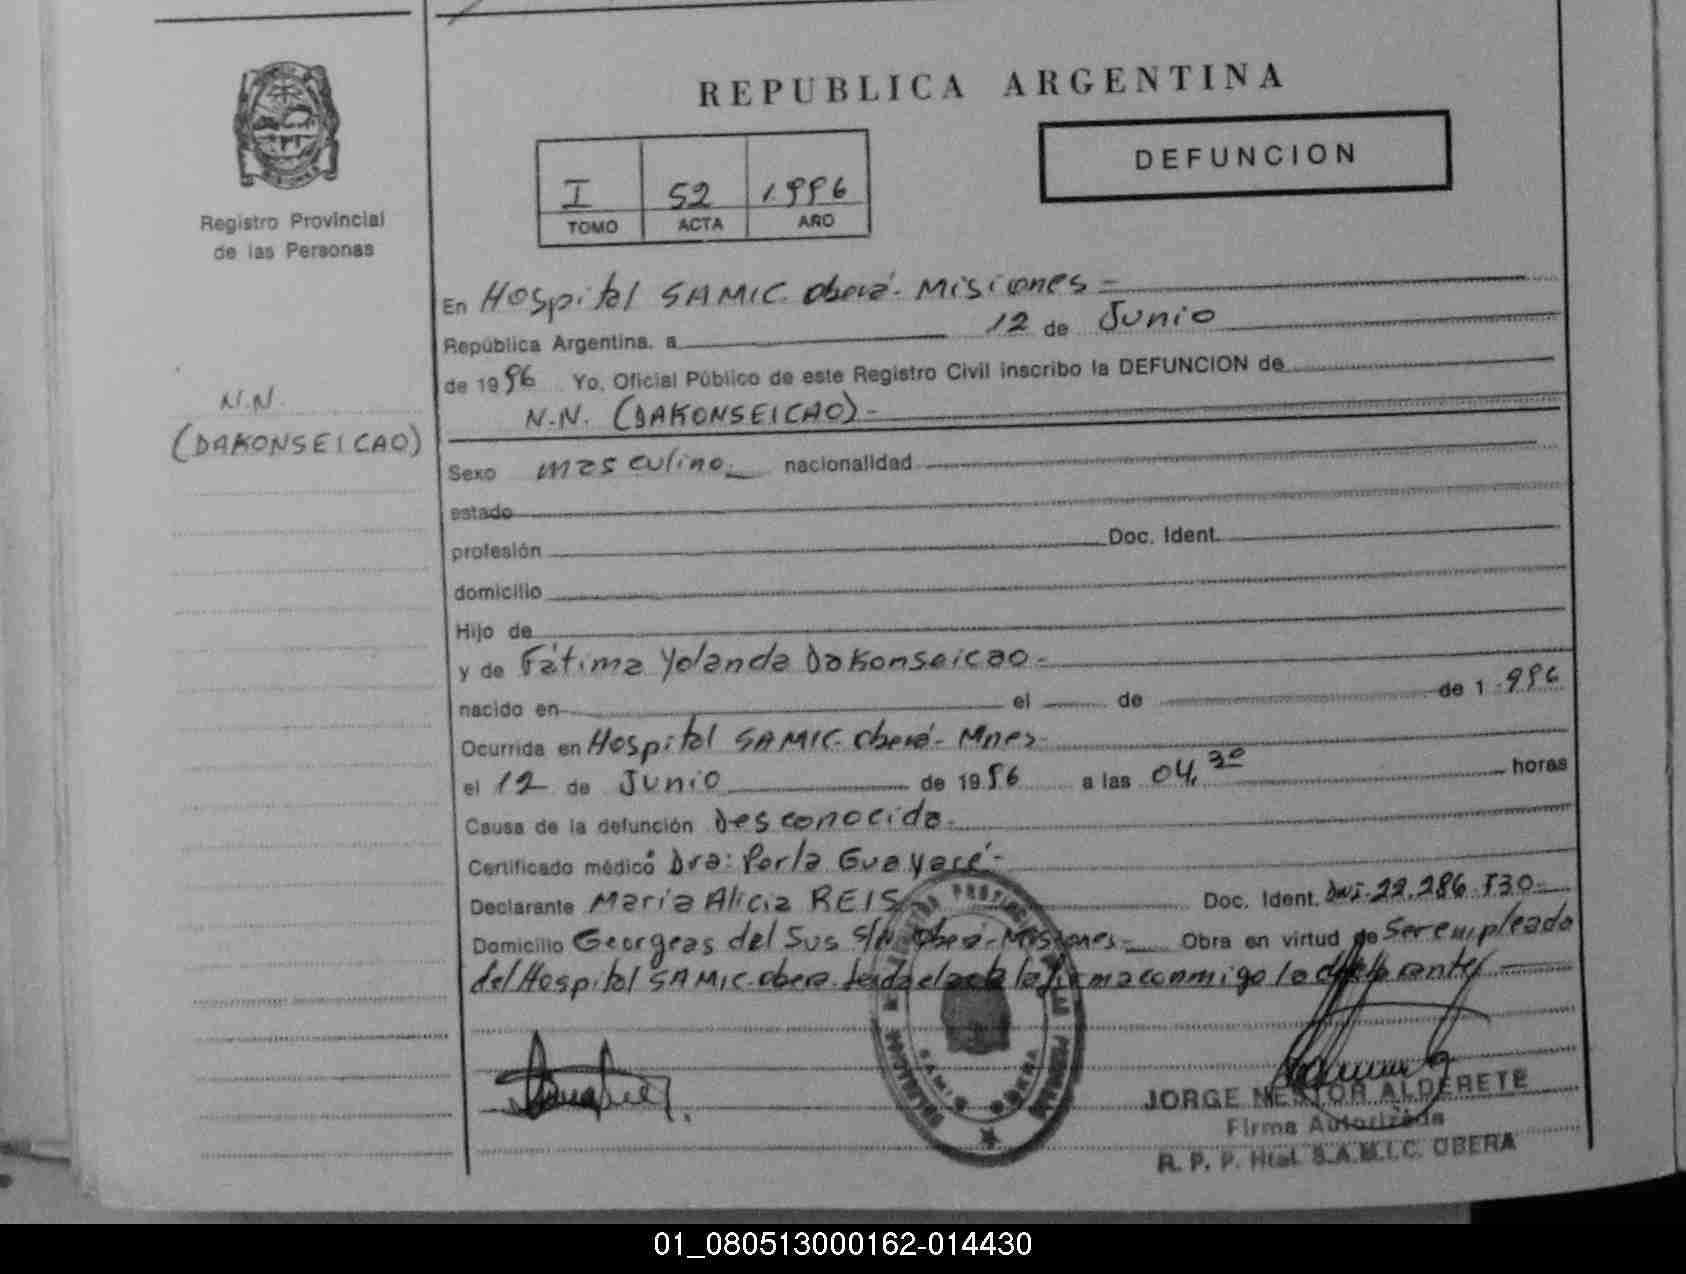 REPUBLICA ARGENTINA
DEFUNCION
I 52 1.996
TOMO ACTA AÑO
Registro Provincial
de las Personas
N.N.
(DAKONSEICAO)
En Hospital SAMIC. Oberá- Misiones -
República Argentina, a 12 de Junio
de 1996 Yo, Oficial Público de este Registro Civil inscribo la DEFUNCION de
N.N. (DAKONSEICAO)-
Sexo masculino._ nacionalidad
estado
profesión Doc. Ident.
domicilio
Hijo de
y de Fátima Yolanda Dakonseicao-
nacido en el de de 1.996
Ocurrida en Hospital SAMIC. Oberá- Mnes-
el 12 de Junio de 1996 a las 04,30 horas
Causa de la defunción Desconocida-
Certificado médico Dra: Perla Guayaré-
Declarante María Alicia REIS Doc. Ident. DNI-22.286.530-
Domicilio Georgeas del Sus S/N Oberá-Misiones- Obra en virtud de Ser empleada
del Hospital SAMIC. Oberá. Leída el acta la firma conmigo la declarante/
SAMIC OBERA
JORGE NESTOR ALDERETE
Firma Autorizada
R. P. P. Htal. S.A.M.I.C. OBERA
01_080513000162-014430